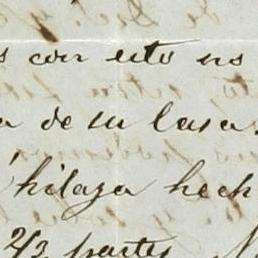 s con esto no
a de su casa.
hilaza hech
2/3 partes